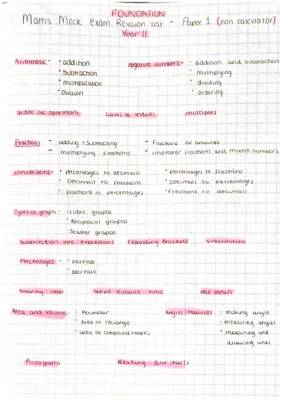 FOUNDATION
Maths Mock Exam Revision list - Paper 1 (non calculator)
Year 11
Arithmetic - • addition
• Subtraction
• multiplication
• Division
negative numbers - • addition and subtraction
• multiplying
• dividing
• ordering
order of operations
Laws of indices
multiples
Fractions - adding + subtracting
- multiplying fractions
- fractions of amounts
- improper fractions and mixed numbers
conversions - • percentages to decimals
• Decimals to fractions
• fractions to percentages
• percentages to fractions
• Decimals to percentages
• fractions to decimals
Types of graph - • cubic graphs
• reciprocal graphs
• scatter graphs
Substitution into expressions
Expanding brackets
substitution
Percentages - • increase
• decrease
Sharing ratio
Speed distance time
the mean
Area and volume - • Perimeter
• Area of rectangle
• area of compound shapes
Angles / measures - • missing angle
• measuring angles
• measuring and
drawing lines
Pictograms
Reading Bar charts